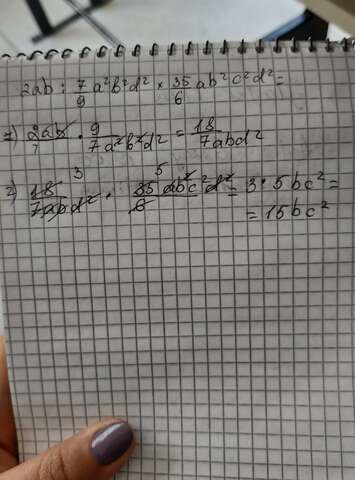 2ab : 7/9 a²b²d² × 35/6 ab²c²d² =
1) 2ab/1 · 9/7a²b²d² = 18/7abd²
2) 18/7abd² · 35ab²c²d²/6 = 3 · 5bc² =
= 15bc²
3
5